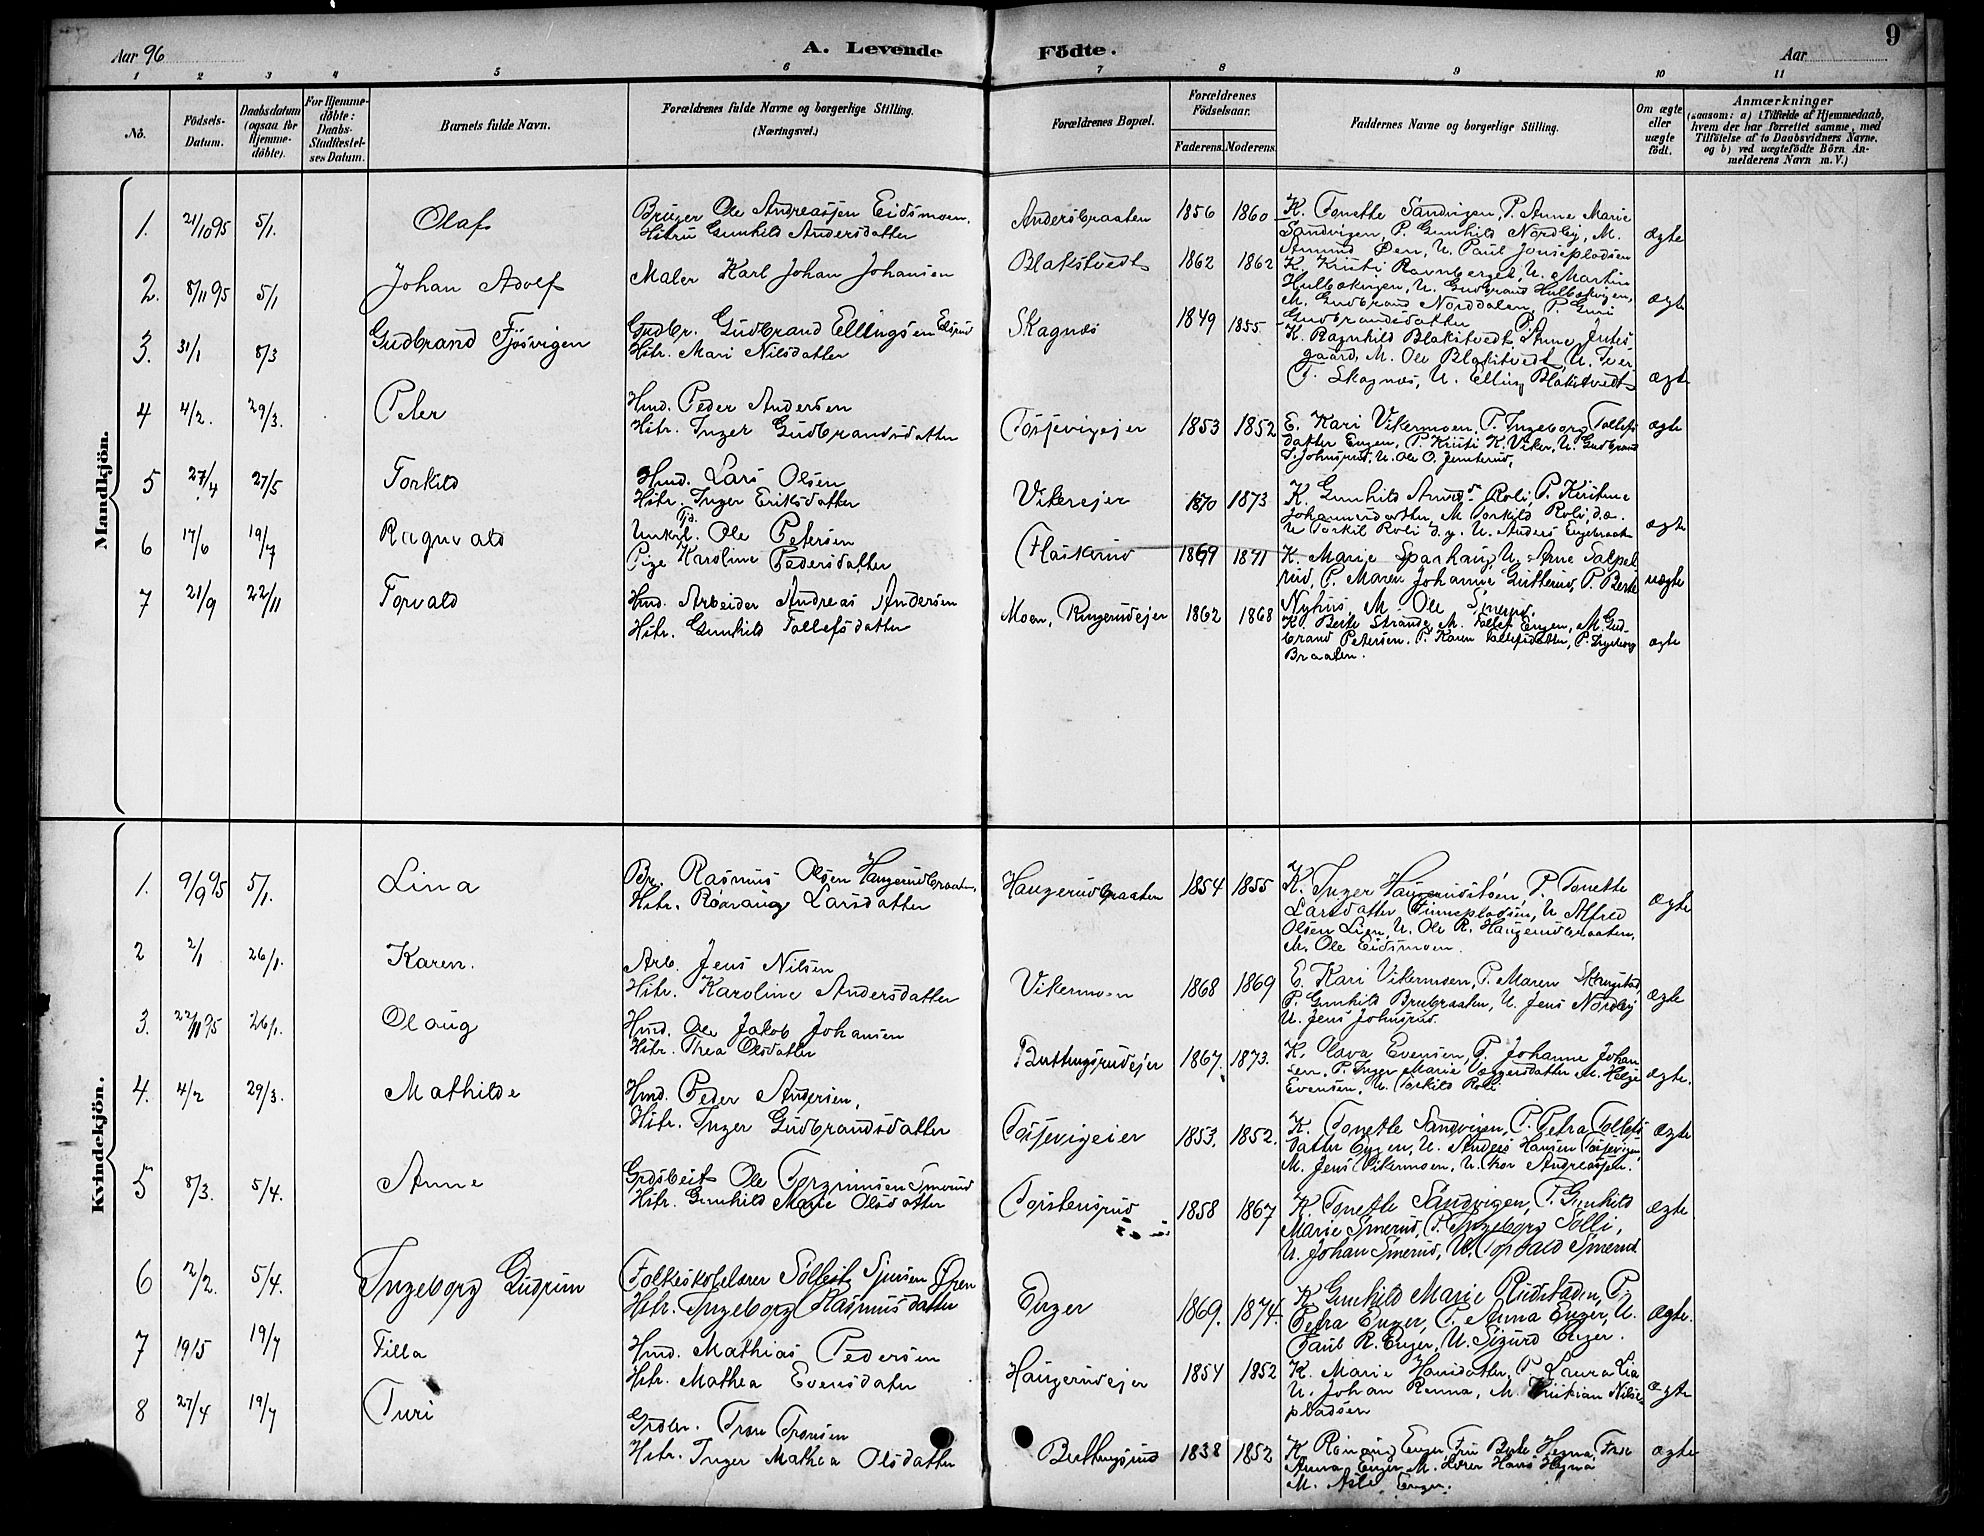 9
Aar 96
A. Levende Födte.
Aar
1 2 3 4 5 6 7 8 9 10 11
No.
Födsels-Datum.
Daabsdatum (ogsaa for Hjemme-döbte).
For Hjemme-döbte: Daabs-Stadfæstel-ses Datum.
Barnets fulde Navn.
Forældrenes fulde Navne og borgerlige Stilling.
(Næringsvei.)
Forældrenes Bopæl.
Forældrenes Födselsaar.
Faderens. Moderens.
Faddernes Navne og borgerlige Stilling.
Om ægte eller uægte født.
Anmærkninger
(saasom: a) i Tilfælde af Hjemmedaab,
hvem der har forrettet samme, med
Tilföielse af to Daabsvidners Navne,
og b) ved uægtefödte Börn An-
melderens Navn m. V.)
Mandkjön.
1. 21/10 95 5/1. Olaf
Bruger Ole Andreassen Eidsmoen.
Hstru Gunhild Andersdatter
Andersbraaten 1856 1860
K. Tonette Sandvigen, P. Anne Marie
Sandvigen, P. Gunhild Nordby, M.
Amund Øen, U. Paul Jonsepladsen
ægte
2. 8/11 95 5/1 Johan Adolf
Maler Karl Johan Johansen
Blakstvedt 1862 1862
K. Kristi Ravnberget, U. Martin
Hulbækvigen, U. Gudbrand Hulbækvigen,
M. Gudbrand Norddalen, P. Guri
Gudbrandsdatter
ægte
3. 31/1 8/3 Gudbrand Fjösvigen
Gudbr. Gudbrand Ellingsen Elsrud
Hstr. Mari Nilsdatter
Skagnæs 1849 1855
K. Ragnhild Blakstvedt, P. Anne
gaard, M. Ole Blakstvedt, U. Iver
T. Skagnæs, U. Elling Blakstvedt
ægte
4 4/2. 29/3. Peter
Hmd. Peder Andersen
Hstr. Inger Gudbrandsdatter
Tosjevigejer 1853 1852
E. Kari Vikermoen, P. Ingeborg Tollefs
datter Engen, P. Kristi K. Viker, U. Gudbrand
S. Johnsrud, U. Ole O. Jenserud,
ægte
5 27/4 27/5 Torkild
Hmd. Lars Olsen
Hstr. Inger Eriksdatter
Vikerejer 1870 1873
K. Gunhild Amundsdr Roli, P. Kristine
Johannesdatter, M. Torkild Roli, d.æ.
U. Torkil Roli d.y. U. Anders Engebraaten
ægte
6 17/6 19/7 Ragnvald
Unkrl. Ole Petersen
Pige Karoline Pedersdatter
Flaskerud 1869 1871
K. Marie Sparhaug, U. Arne Salpel-
rud, P. Maren Johanne Gutterud, P. Berte
Nyhus, M. Ole Smerud.
uægte
7 21/9 22/11 Torvald
Hmd. Arbeider Andreas Andersen
Hstr. Gunhild Tollefsdatter
Moen, Ringerudejer 1862 1868
K. Berte Strande, M. Tollef Engen, M. Gud-
brand Petersen. P. Karen Tollefsdatter, P. Ingeborg
Braaten.
ægte
Kvindekjön.
1. 9/9 95 5/1. Lina
Br. Rasmus Olsen Haugerudbraaten,
Hstr. Rönaug Larsdatter
Haugerudbraaten 1854 1855
K. Inger Haugerudstøen, P. Tonette
Larsdatter Finnepladsen, U. Alfred
Olsen Lien, U. Ole R. Haugerudbraaten,
M. Ole Eidsmoen.
ægte
2 2/1 26/1. Karen.
Arb. Jens Nilsen
Hstr. Karoline Andersdatter
Vikermoen 1868 1869
E. Kari Vikermoen, P. Maren Skrugstad,
P. Gunhild Brubraaten, U. Jens Nordby
U. Jens Johnsrud.
ægte
3. 22/11 95 26/1. Olaug
Hmd. Ole Jakob Johansen
Hstr. Thea Olsdatter
Buttingsrudejer 1867. 1873.
K. Olava Evensen, P. Johanne Johan
sen, P. Inger Marie datter M. Helge
Evensen, U. Torkild Roli
ægte.
4. 4/2 29/3. Mathilde
Hmd. Peder Andersen,
Hstr. Inger Gudbrandsdatter
Tosjevigeier 1853. 1852.
K. Tonette Sandvigen, P. Petra Tollefs
datter Engen, U. Anders Hansen Tosjevigen,
M. Jens Vikermoen, U. Thor Andreassen.
ægte
5 8/3. 5/4. Anne
Grdsbest Ole Torgrimsen Smerud
Hstr. Gunhild Marie Olsdatter
Torstensrud 1858 1867
K. Tonette Sandvigen, P. Gunhild
Marie Smerud, P. Ingeborg Solli,
U. Johan Smerud, U. Torvald Smerud
ægte
6 2/2. 5/4. Ingeborg Gudrun
Folkeskolelærer Söllestz Sjursen Øren
Hstr. Ingeborg Rasmusdatter
Enger 1869. 1874.
K. Gunhild Marie Rudstaden, P.
Petra Enger, P. Anna Enger, U.
Paul R. Enger, U. Sigurd Enger.
ægte.
7 19/5 19/7 Tilla
Hmd. Mathias Pedersen
Hstr. Mathea Evensdater
Haugerudejer 1854 1852
K. Marie Hansdatter, P. Laura Lia
U. Johan Renna, M. Kristian Nilse-
pladsen
ægte
8 27/4 19/7 Turi
Grdbr. Tron Tronsen
Hstr. Inger Mathea Olsdatter
Buttingsrud 1838 1852
K. Rönaug Enger, Fru Berte Hegna, Frøk
Anna Enger M. Lærer Hans Hegna
M. Asle Enger.
ægte